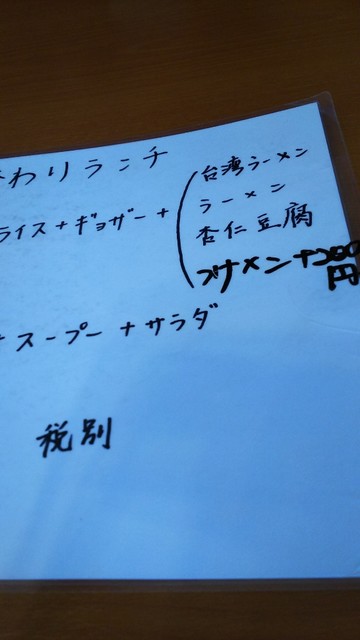 わりランチ
ライス+ギョザー+
台湾ラーメン
ラーメン
杏仁豆腐
つけメン+200
円
+スープー+サラダ
税別